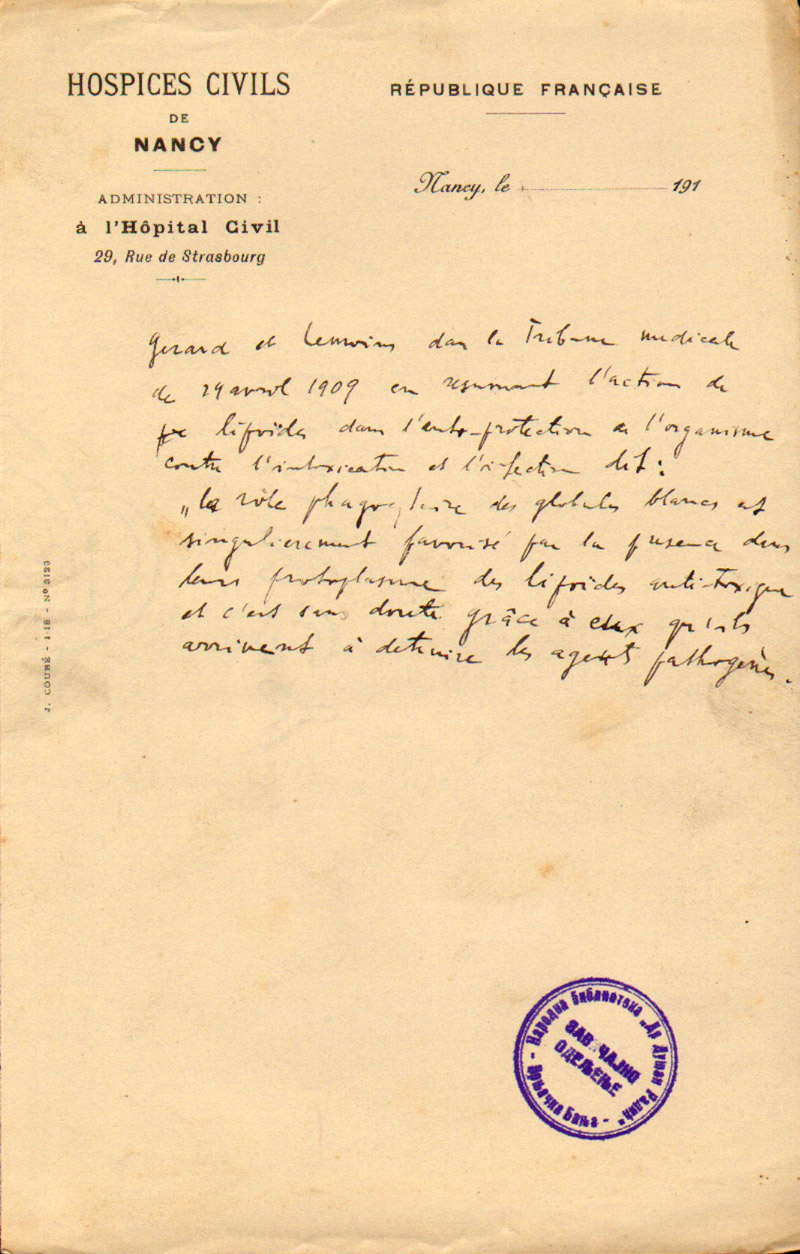 HOSPICES CIVILS
DE
NANCY
ADMINISTRATION :
à l'Hôpital Civil
29, Rue de Strasbourg
RÉPUBLIQUE FRANÇAISE
Nancy, le 191
Gerard et Lemoine dans la Tribune medicale
de 29 avril 1909 en resumant l'action de
lipoïdes dans l'auto-protection de l'organisme
contre l'intoxication et l'infection dit :
„le rôle phagocytaire des globules blancs est
singulierement favorisé par la presence dans
leurs protoplasme des lipoides antitoxique
et c'est sans doute grâce à eux qu'ils
arrivent à detruire les agents pathogènes.
J. COUBÉ - 1-18 - Nº 3123
Народна библиотека „Др Душан Радић“ - Врњачка Бања -
ЗАВИЧАЈНО
ОДЕЉЕЊЕ